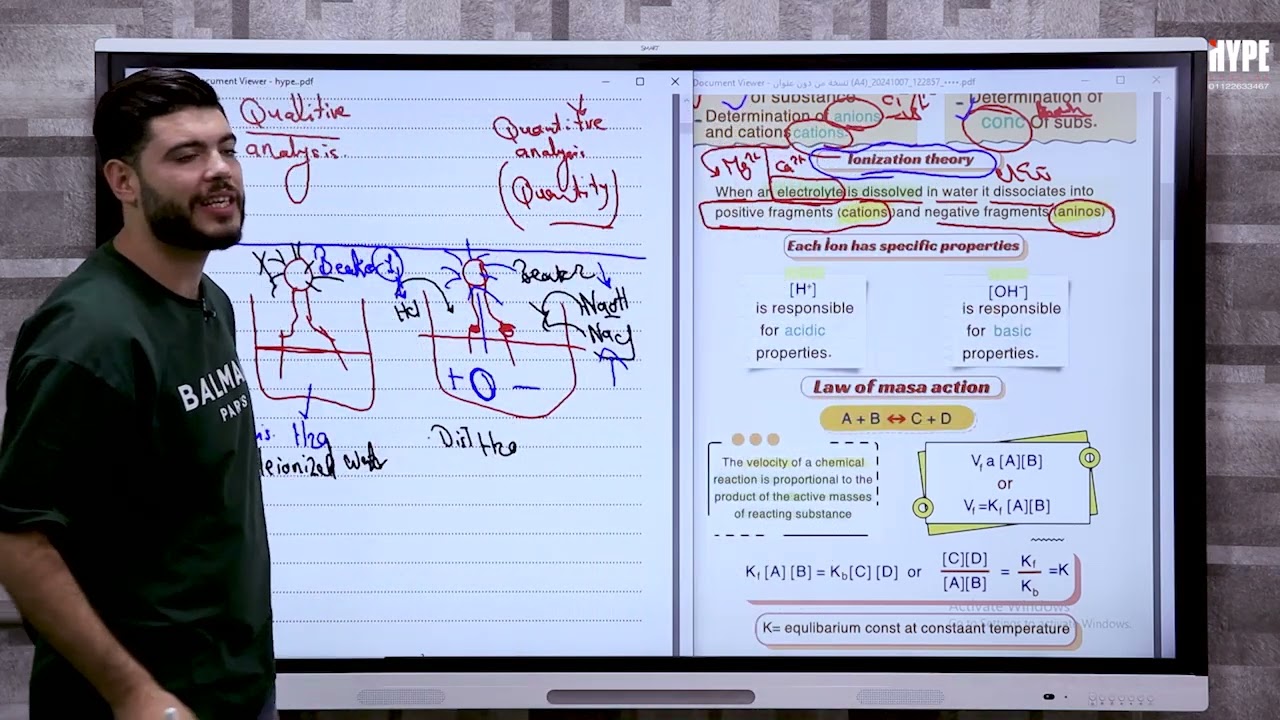 SMART
HYPE
01122633467
ocument Viewer - hype..pdf
Document Viewer - نسخة من دون عنوان (A4)_20241007_122857_••••.pdf
Qualitive
analysis.
Quantitve
analysis
(Quantity)
X
Beaker 1
Hcl
Beaker
NaoH
Nacl
+ O −
is. H2o
deionized
Dist H2o
BALMA
PARIS
of substance
- Determination of anions
and cations cations.
- Determination of
conc Of subs.
Mg2+
Ca2+
Ionization theory
When an electrolyte is dissolved in water it dissociates into
positive fragments (cations) and negative fragments (aninos)
Each ion has specific properties
[H⁺]
is responsible
for acidic
properties.
[OH⁻]
is responsible
for basic
properties.
Law of masa action
A + B ↔ C + D
The velocity of a chemical
reaction is proportional to the
product of the active masses
of reacting substance
Vf a [A][B]
or
Vf =Kf [A][B]
Kf [A] [B] = Kb[C] [D] or [C][D] / [A][B] = Kf / Kb =K
Activate Windows
Go to Settings to activate Windows.
K= equlibarium const at constaant temperature